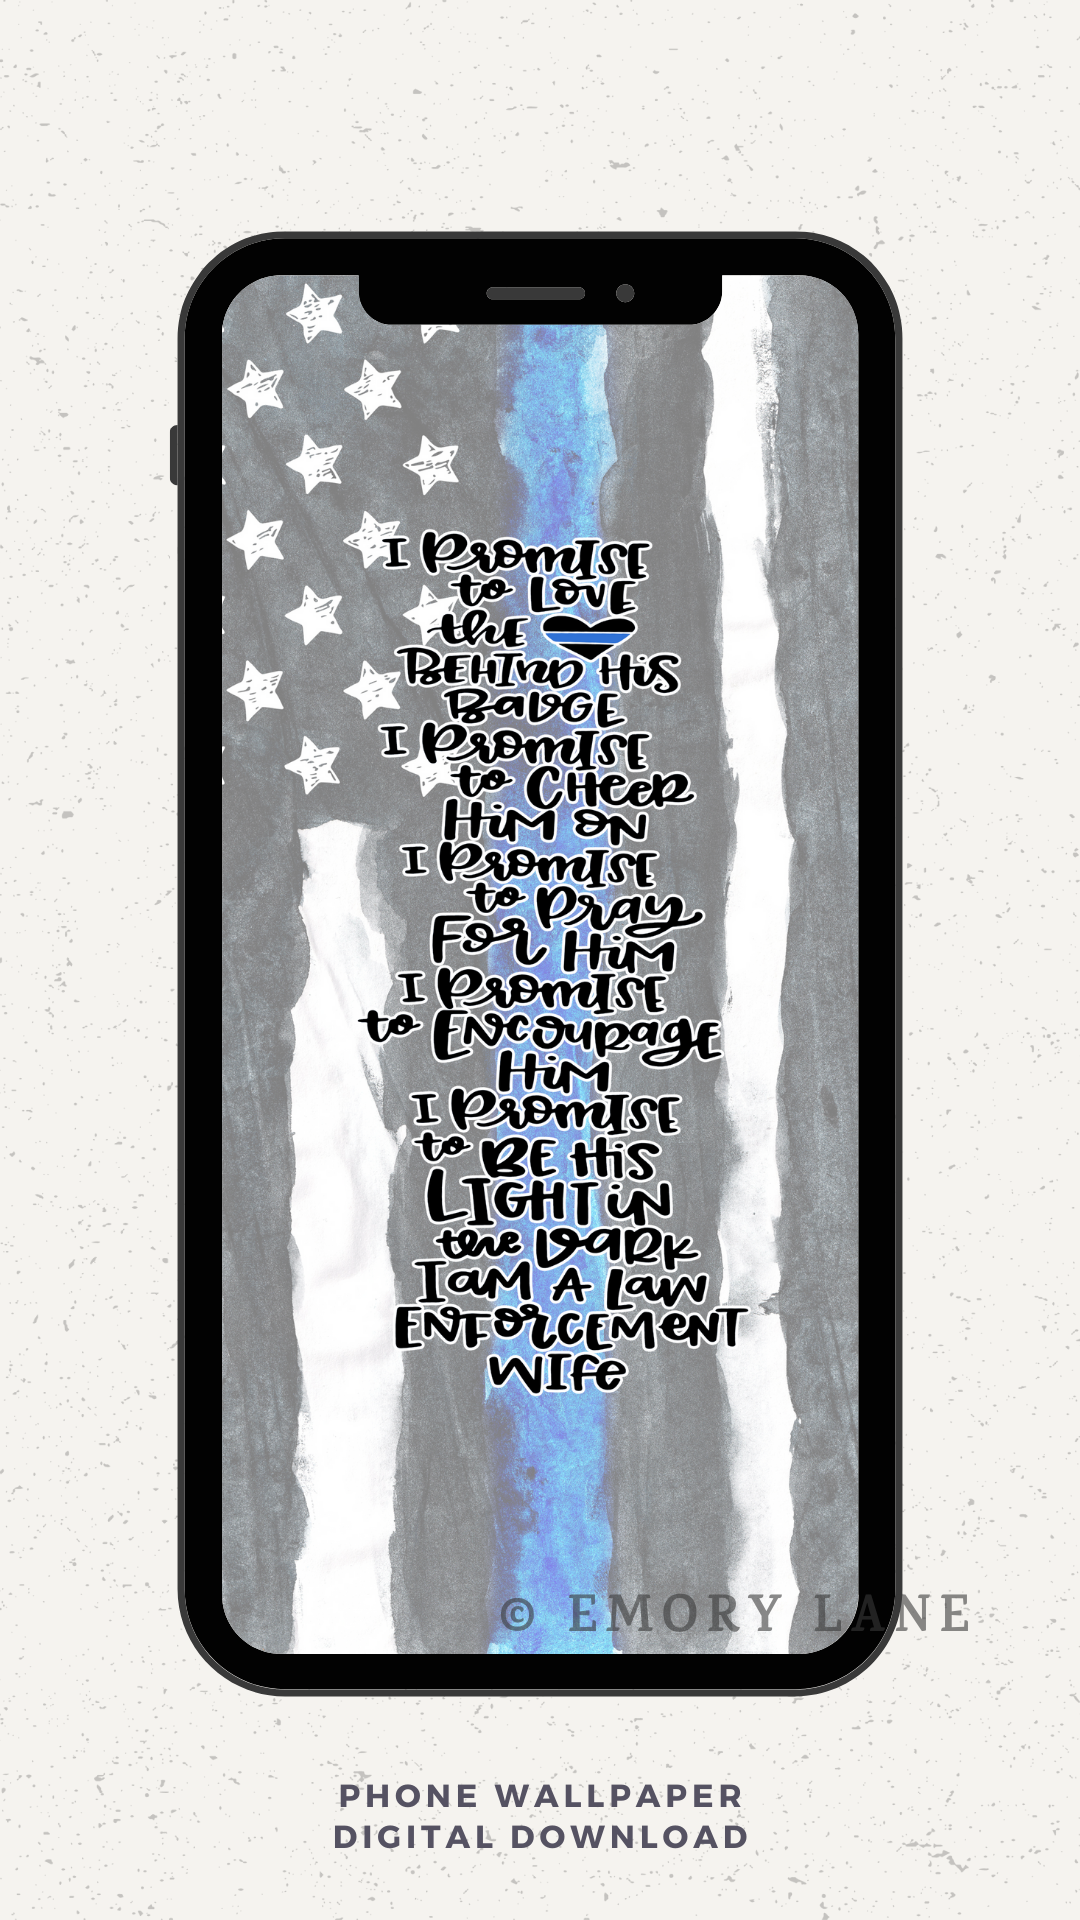 I PROMISE
to LOVE
the
BEHIND HiS
BaDGE
I PROMISE
to CHEER
HiM ON
I PROMISE
to PRay
FOR HiM
I PROMISE
to ENCOURAGE
HiM
I PROMISE
to BE HiS
LIGHT iN
the DARK
I aM A Law
ENFORCEMENT
WIFe
© EMORY LANE
PHONE WALLPAPER
DIGITAL DOWNLOAD